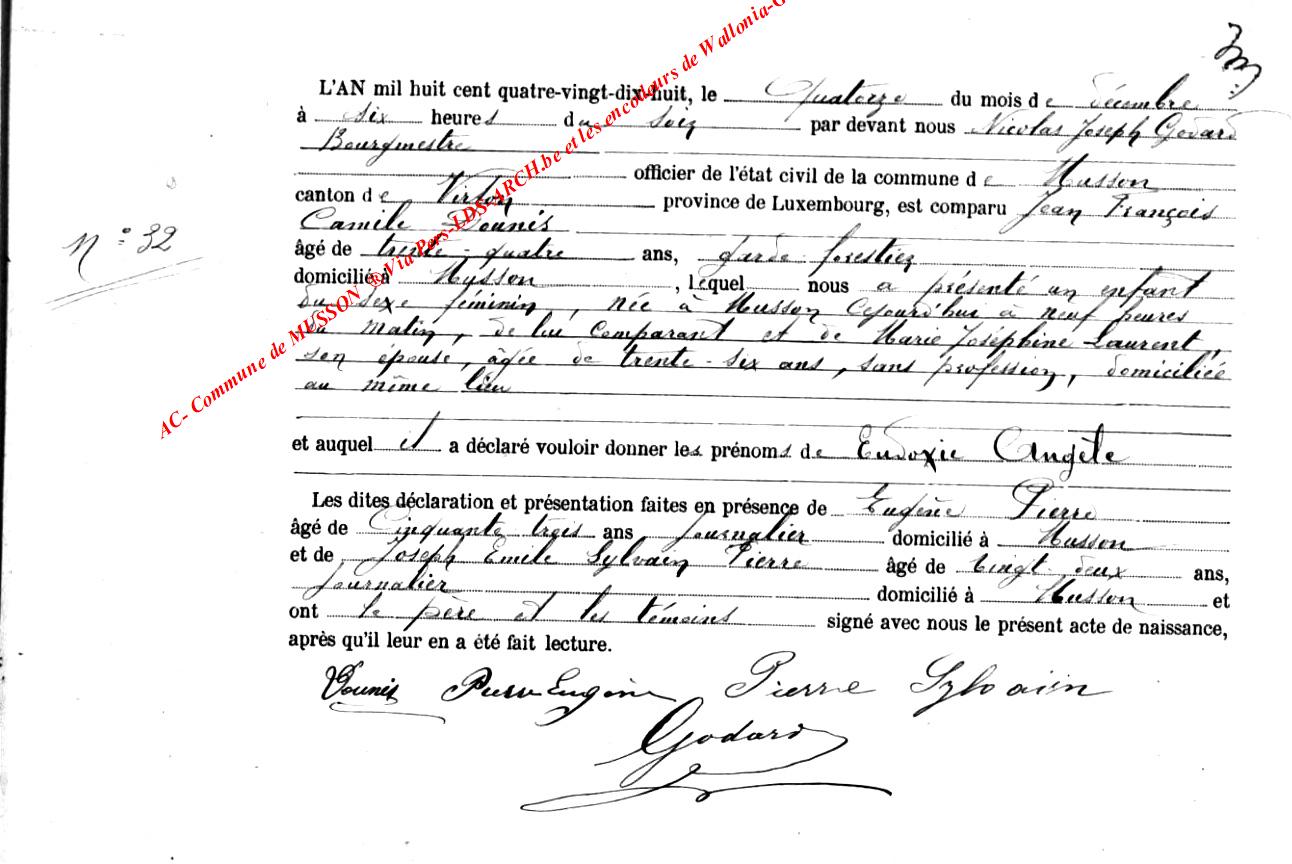 L'AN mil huit cent quatre-vingt-dix-huit, le Quatorze du mois de décembre
à six heures du soir par devant nous Nicolas Joseph Godard
Bourgmestre
officier de l'état civil de la commune de Musson
canton de Virton province de Luxembourg, est comparu Jean François
Camile
âgé de trente-quatre ans, garde forestier
N° 32
domicilié à Musson, lequel nous a présenté un enfant
du sexe féminin, née à Musson cejourd'hui à neuf heures
du matin, de lui comparant et de Marie Joséphine Laurent,
son épouse, âgée de trente-six ans, sans profession, domiciliée
au même lieu
et auquel il a déclaré vouloir donner les prénoms de Eudoxie Angèle
Les dites déclaration et présentation faites en présence de Eugène Pierre
âgé de Cinquante trois ans journalier domicilié à Musson
et de Joseph Emile Sylvain Pierre âgé de vingt deux ans,
journalier domicilié à Musson et
ont le père et les témoins signé avec nous le présent acte de naissance,
après qu'il leur en a été fait lecture.
Pierre Eugène Pierre Sylvain
Godard
AC- Commune de MUSSON ® Via Pers-LDS-ARCH.be et les encodeurs de Wallonia-G